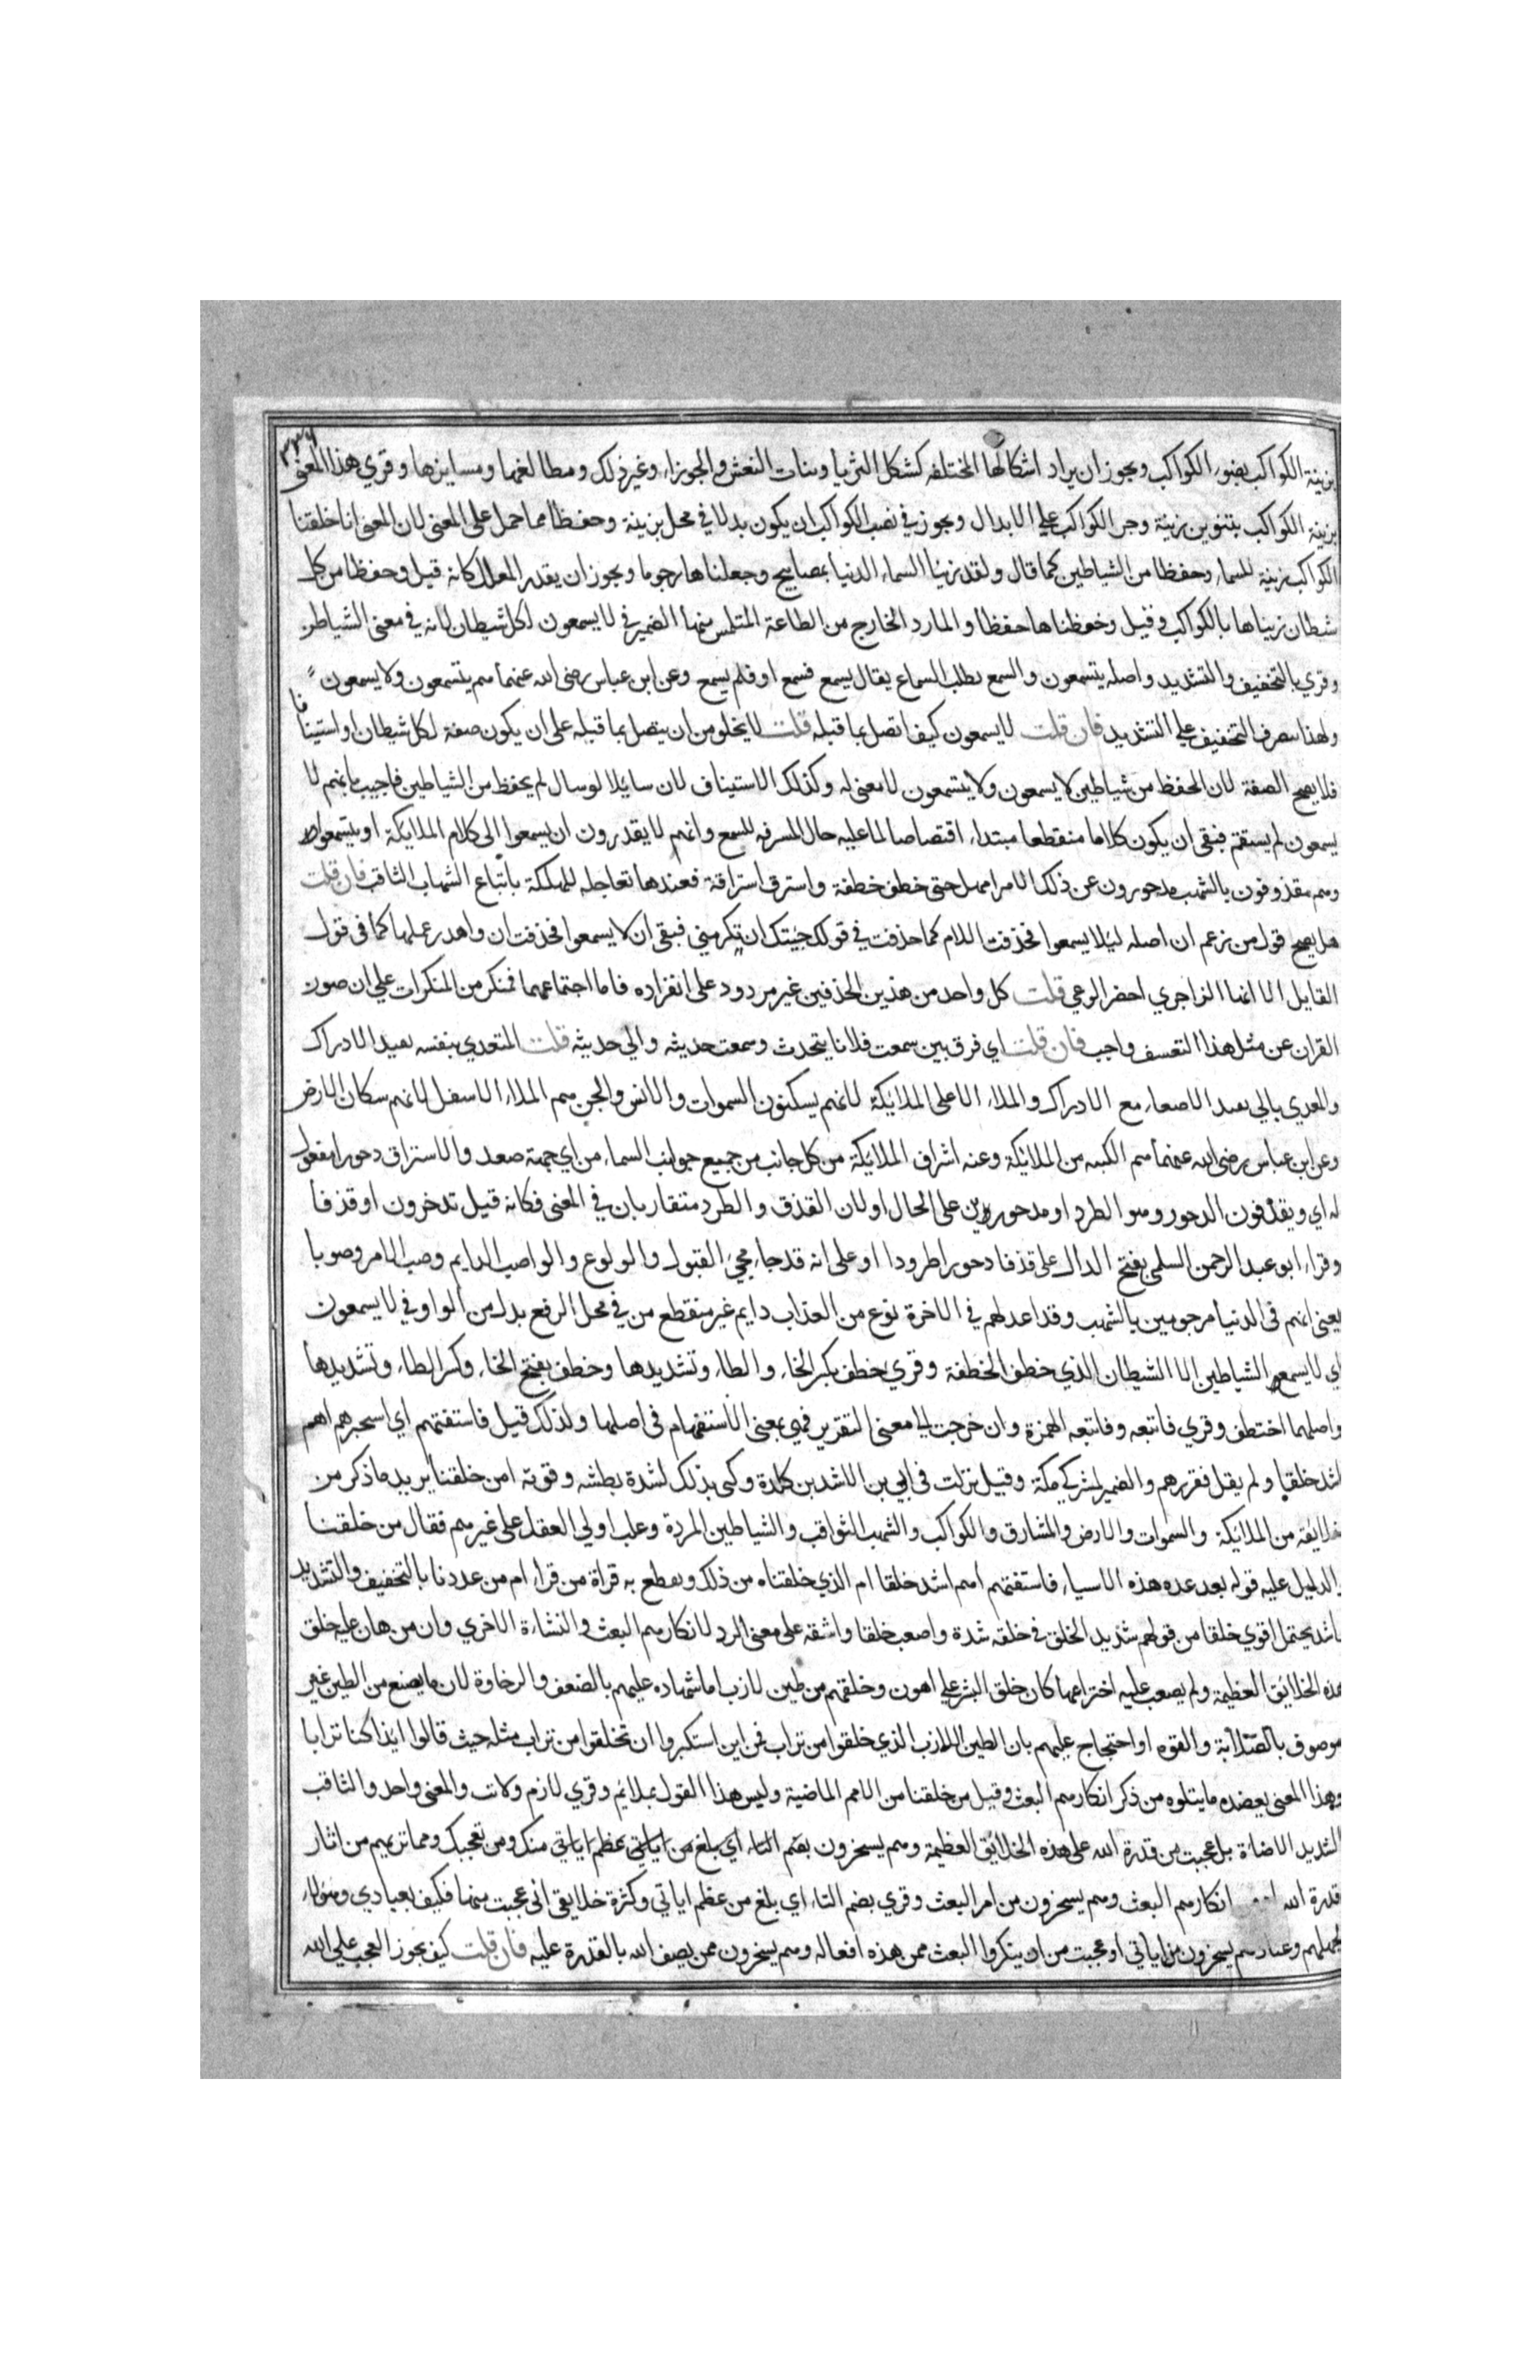 ٣٣٦
بزينة الكواكب بضوء الكواكب ويجوز ان يراد اشكالها المختلفه كشكل الثريا وبنات النعش والجوزاء وغير ذلك ومطالعها ومسايرها وقري هذا المعنى
بزينة الكواكب بتنوين زينة وجر الكواكب علي الابدال ويجوز في نصب الكواكب ان يكون بدلا في محل بزينة وحفظا مما حمل على المعنى لان المعنى انا خلقنا
الكواكب زينة للسماء وحفظا من الشياطين كما قال ولقد زينا السماء الدنيا بمصابيح وجعلناها رجوما ويجوز ان يقدر المعلل كانه قيل وحفظا من كل
شيطان زيناها بالكواكب وقيل وحفظناها حفظا والمارد الخارج من الطاعة المتلمس منها الضمير في لا يسمعون لكل شيطان لانه في معنى الشياطين
وقري بالتخفيف والتشديد واصله يتسمعون والسمع تطلب السماع يقال يسمع فسمع او فلم يسمع وعن ابن عباس رضى الله عنهما هم يتسمعون ولا يسمعون
ولهذا ينصرف التخفيف علي التشديد فان قلت لا يسمعون كيف اتصل بما قبله قلت لا يخلو من ان يتصل بما قبله على ان يكون صفة لكل شيطان او استينافا
فلا يصح الصفة لان الحفظ من شياطين لا يسمعون ولا يتسمعون لا معنى له وكذلك الاستيناف لان سائلا لو سال لم يحفظ من الشياطين فاجيب بانهم لا
يسمعون لم يستقم فبقى ان يكون كلاما منقطعا مبتداء اقتصاصا لما عليه حال المسرقه للسمع وانهم لا يقدرون ان يسمعوا الى كلام الملايكة او يتسمعوا
وهم مقذوفون بالشهب مدحورون عن ذلك الا من امهل حتى خطف خطفة واسترق استراقة فعندها تعاجله المهلكة باتباع الشهاب الثاقب فان قلت
هل يصح قول من زعم ان اصله ليلا يسمعوا فحذفت اللام كما حذفت في قولك جيتك ان تكرمني فبقى ان لا يسمعوا فحذفت ان واهدر عملها كما فى قول
القايل الا ايهذا الزاجري احضر الوعي قلت كل واحد من هذين الحذفين غير مردود على انفراده فاما اجتماعهما فمنكر من المنكرات علي ان صون
القران عن مثل هذا التعسف واجب فان قلت اي فرق بين سمعت فلانا يتحدث وسمعت حديثه والي حديثه قلت المتعدي بنفسه يفيد الادراك
والمعدي بالي يفيد الاصغاء مع الادراك والملاء الاعلى الملايكة لانهم يسكنون السموات والانس والجن هم الملاء الاسفل لانهم سكان الارض
وعن ابن عباس رضى الله عنهما هم الكتبه من الملائكة وعنه اشراف الملائكة من كل جانب من جميع جوانب السماء من اي جهة صعد والاستراق دحورا مفعول
له اي ويقذفون الدحور وهو الطرد او مدحورين على الحال او لان القذف والطرد متقاربان في المعنى فكانه قيل تدخرون او قذفا
وقراء ابو عبد الرحمن السلمي بفتح الدال على قذفا دحورا طرودا او على انه قد جاء مجيء القبول والولوع والواصب الدايم وصب الامر وصوبا
يعني انهم فى الدنيا مرجومين بالشهب وقد اعد لهم في الاخرة نوع من العذاب دايم غير منقطع من في محل الرفع بدل من الواو في لا يسمعون
اي لا يسمع الشياطين الا الشيطان الذي خطف الخطفة وقري خطف بكسر الخاء والطاء وتشديدها وخطف بفتح الخاء وكسر الطاء وتشديدها
واصلهما اختطف وقري فاتبعه وفاتبعه الهمزة وان خرجت الي معنى التقرير فهي بمعنى الاستفهام فى اصلها ولذلك قيل فاستفتهم اي استخبرهم اهم
اشد خلقا ولم يقل فقررهم والضمير لمشركي مكة وقيل نزلت فى ابي بن الاشد بن كلدة وكني بذلك لشدة بطشه وقوته امن خلقنا يريد ما ذكر من
خلايقه من الملائكة والسموات والارض والمشارق والكواكب والشهب الثواقب والشياطين المردة وغلب اولي العقل على غيرهم فقال من خلقنا
والدليل عليه قوله بعد عده هذه الاشياء فاستفتهم اهم اشد خلقا ام الذي خلقناه من ذلك ويقطع به قراة من قراء ام من عددنا بالتخفيف والتشديد
واشد يحتمل اقوي خلقا من قولهم شديد الخلق في خلقه شدة واصعب خلقا واشقه على معنى الرد لانكارهم البعث والنشاءة الاخري وان من هان عليه خلق
هذه الخلائق العظيمة ولم يصعب عليه اختراعها كان خلق البشر علي اهون وخلقهم من طين لازب اما شهاده عليهم بالضعف والرخاوة لان ما يصنع من الطين غير
موصوف بالصلابة والقوه او احتجاج عليهم بان الطين اللازب الذي خلقوا من تراب فمن اين استكبروا ان يخلقوا من تراب مثله حيث قالوا ايذا كنا ترابا
وهذا المعنى يعضده ما يتلوه من ذكر انكارهم البعث وقيل من خلقنا من الامم الماضية وليس هذا القول بملائم وقري لازم ولاتب والمعنى واحد والثاقب
الشديد الاضاة بل عجبت من قدرة الله على هذه الخلائق العظيمة وهم يسخرون بضم التاء اي بلغ من اياتي عظم اياتي منك ومن تعجبك ومما تريهم من اثار
قدرة الله انكارهم البعث وهم يسخرون من امر البعث وقري بضم التاء اي بلغ من عظم اياتي وكثرة خلايقى انى عجبت منها فكيف بعبادي وهؤلاء
بجهلهم وعنادهم يسخرون من اياتي او عجبت من ان ينكروا البعث ممن هذه افعاله وهم يسخرون ممن يصف الله بالقدرة عليه فان قلت كيف يجوز العجب علي الله